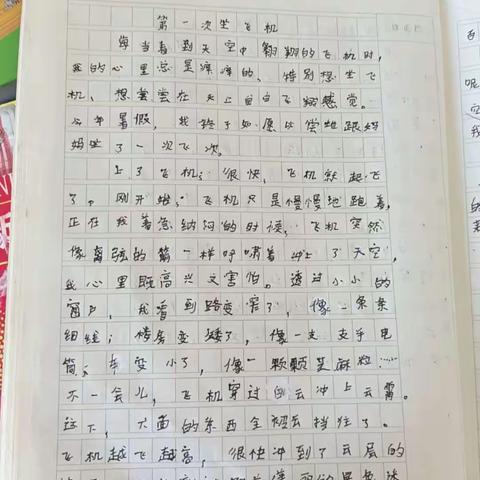 第一次坐飞机
每当看到天空中翱翔的飞机时，
我的心里总是痒痒的，特别想坐飞
机，想尝尝在天上自由飞翔感觉。
今年暑假，我终于如愿以尝地跟妈
妈坐了一次飞次。
上了飞机，很快，飞机就起飞
了。刚开始，飞机只是慢慢地跑着，
正在我着急纳闷的时候，飞机突然
像离弦的箭一样呼啸着冲上了天空，
我心里既高兴又害怕。透过小小的
窗户，我看到路变窄了，像一条条
细线；楼房变矮了，像一支支手电
筒；车变小了，像一颗颗芝麻粒……
不一会儿，飞机穿过白云冲上云霄。
这下，下面的东西全被云挡住了。
飞机越飞越高，很快冲到了云层的